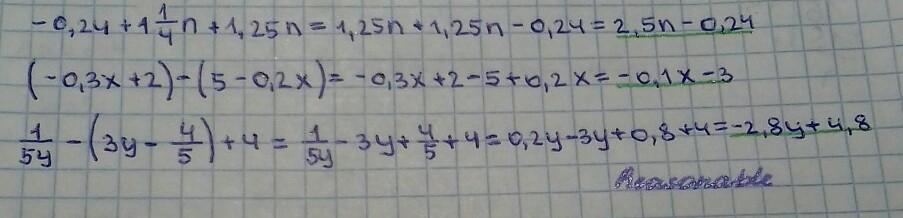 -0,24 + 1 1/4 n + 1,25n = 1,25n + 1,25n - 0,24 = 2,5n - 0,24
(-0,3x + 2) - (5 - 0,2x) = -0,3x + 2 - 5 + 0,2x = -0,1x - 3
1/5y - (3y - 4/5) + 4 = 1/5y - 3y + 4/5 + 4 = 0,2y - 3y + 0,8 + 4 = -2,8y + 4,8
Reasonable